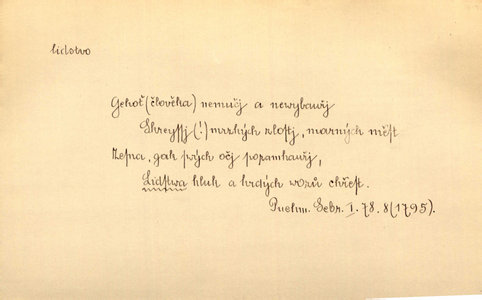 lidstvo
Gehož (člověka) nemučj a newybauřj
Skreyssj (!) mrzkých zlostj, marných měst
Zesna, gak swých očj pozamhauřj,
Lidstwa hluk a hrdých wozů chřest.
Puchm. Sebr. I. 78. 8 (1795).